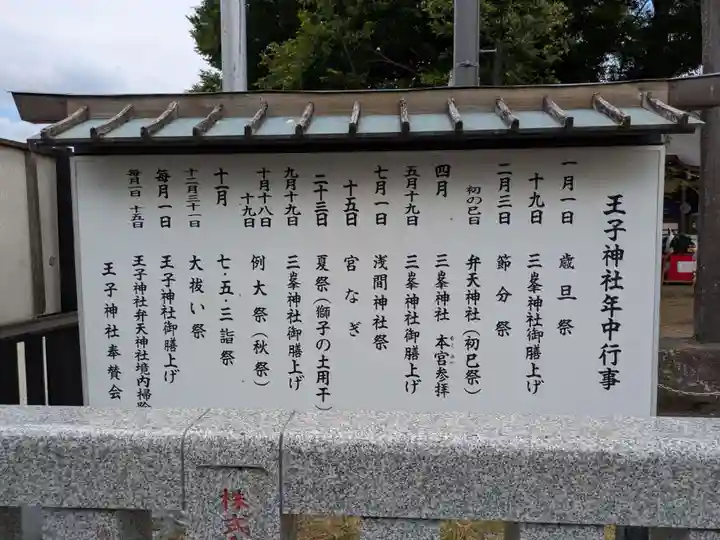 王子神社年中行事
一月一日 歳旦祭
十九日 三峯神社御膳上げ
二月三日 節分祭
初の巳日 弁天神社(初巳祭)
四月 三峯神社 本宮参拝
五月十九日 三峯神社御膳上げ
七月一日 浅間神社祭
十五日 宮なぎ
二十三日 夏祭(獅子の土用干)
九月十九日 三峯神社御膳上げ
十月十八日 十九日 例大祭(秋祭)
十一月 七・五・三詣祭
十二月三十一日 大祓い祭
毎月一日 王子神社御膳上げ
毎月一日 十五日 王子神社弁天神社境内掃除
王子神社奉賛会
株式